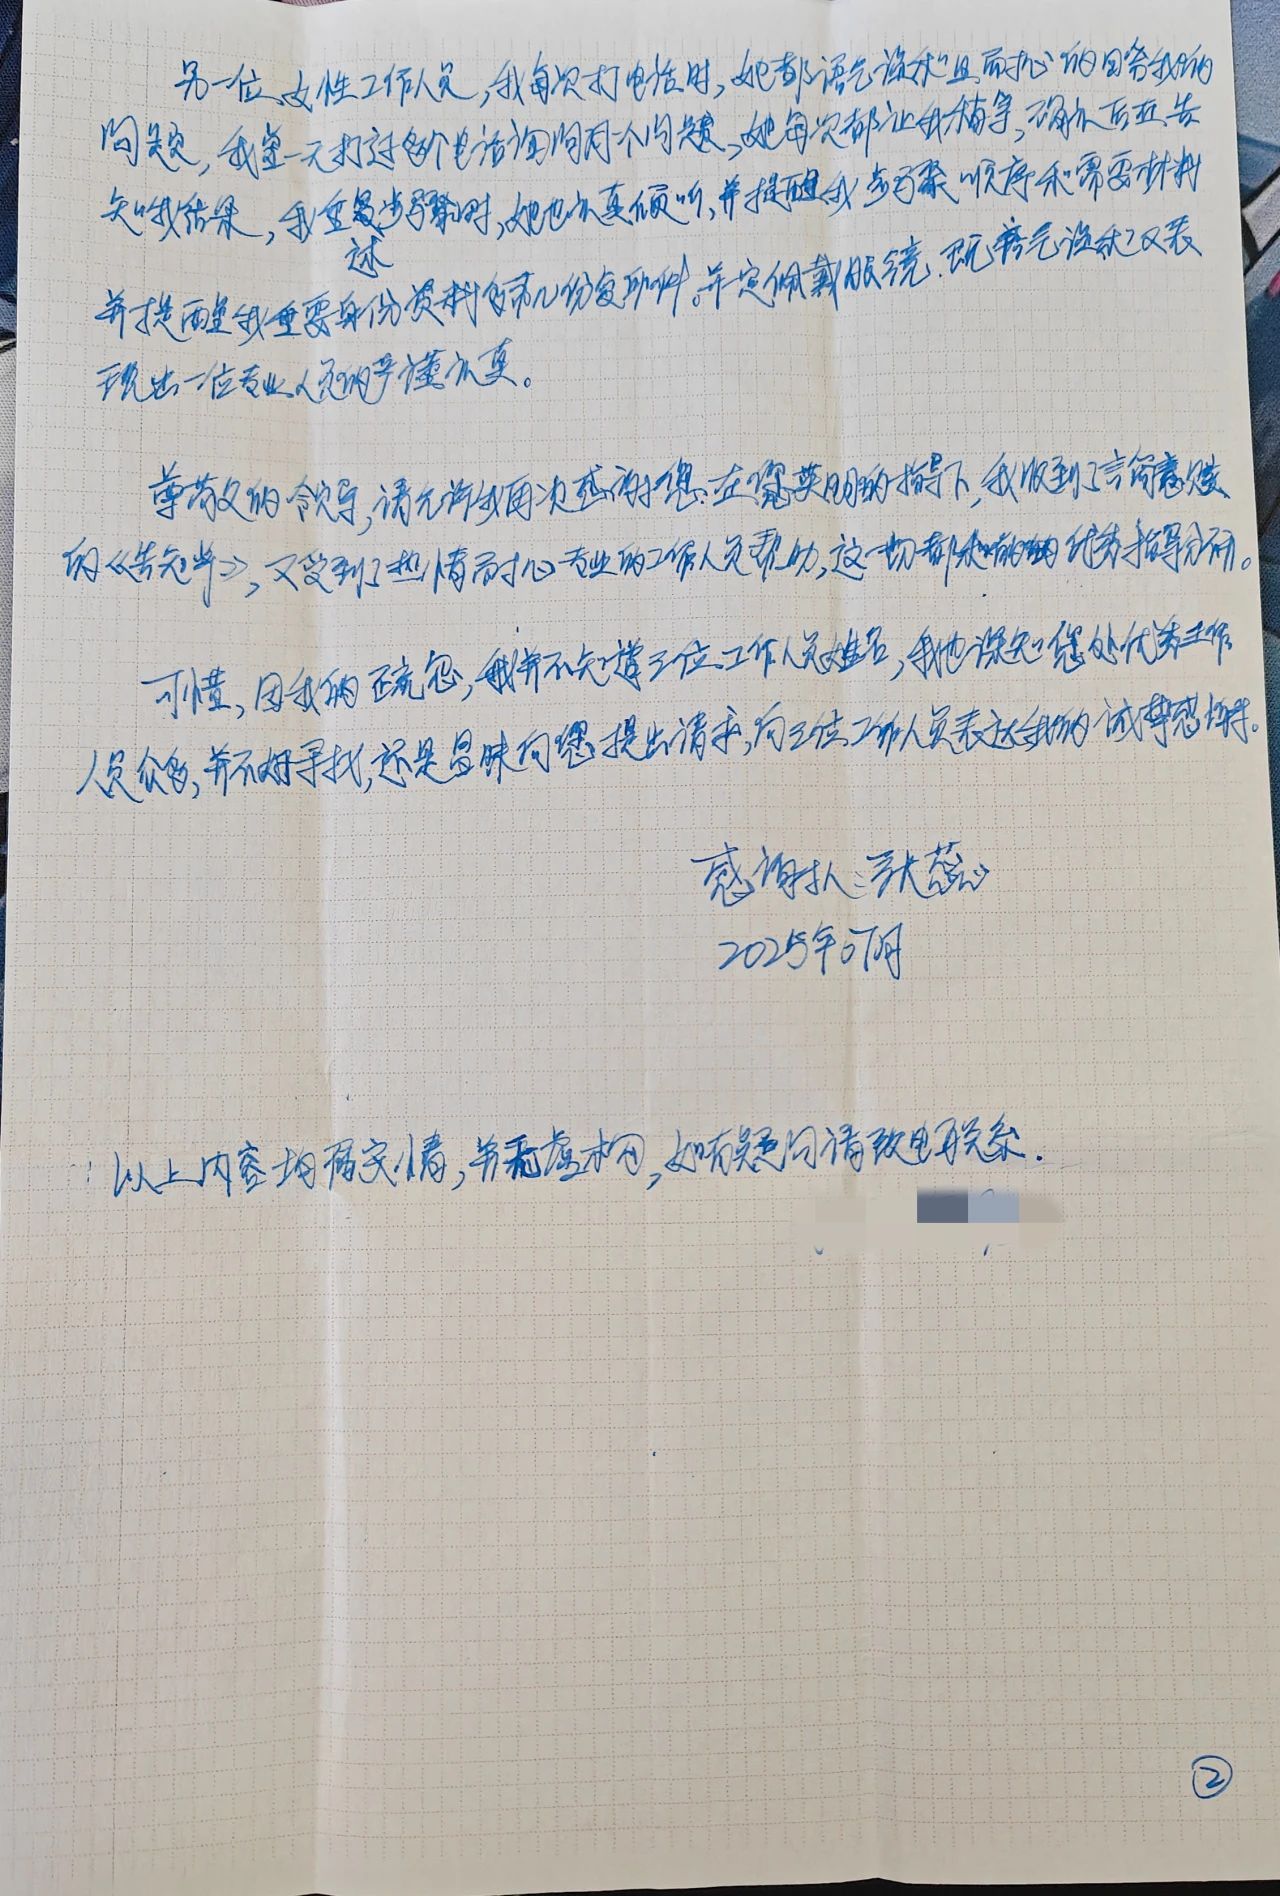 另一位女性工作人员，我每次打电话时，她都语气温和且耐心的回答我的
问题，我曾一天打过多个电话询问同一个问题，她每次都让我稍等，确认后再告
知我结果，我重复步骤时，她也认真倾听，并提醒我步骤顺序和需要材料
述
并提醒我重要身份资料多带几份复印件。并定佩戴眼镜．既语气温和又表
现出一位专业人员的严谨认真。
尊敬的领导，请允许我再次感谢您．在您英明的指导下，我收到了言简意赅
的《告知单》，又受到了热情耐心专业的工作人员帮助，这一切都和的优秀指导分不开。
可惜，因我的疏忽，我并不知道三位工作人员姓名，我也深知您处优秀工作
人员众多，并不好寻找，还是冒昧向您提出请求，向三位工作人员表达我的诚挚感谢。
感谢人：张蕊
2025年07月
以上内容均属实情，并无虚构，如有疑问请致电再联系．
②